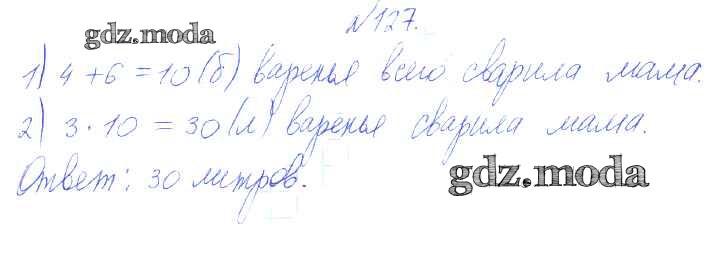 №127.
gdz.moda
1) 4 + 6 = 10 (б) варенья всего сварила мама.
2) 3 · 10 = 30 (л) варенья сварила мама.
Ответ: 30 литров.
gdz.moda